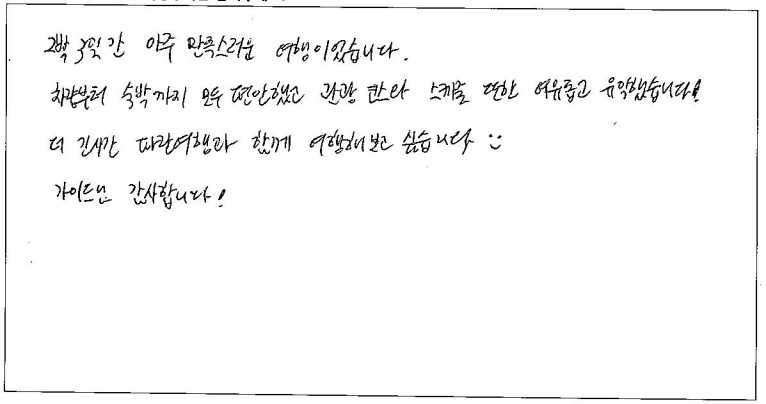 2박 3일간 아주 만족스러운 여행이었습니다.
차량부터 숙박까지 모두 편안했고 관광 코스와 스케줄 또한 여유롭고 유익했습니다!
더 긴시간 파란여행과 함께 여행해보고 싶습니다 :)
가이드님 감사합니다!